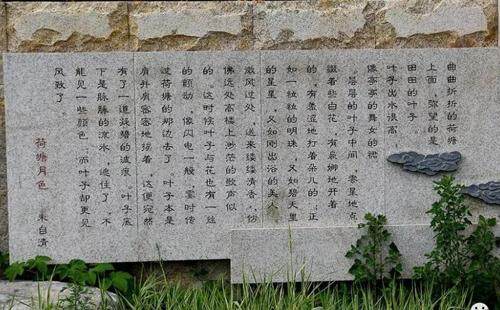 曲曲折折的荷塘
上面，弥望的是
田田的叶子。
叶子出水很高，
像亭亭的舞女的裙。
层层的叶子中间，零星地点
缀着些白花，有袅娜地开着
的，有羞涩地打着朵儿的；正
如一粒粒的明珠，又如碧天里
的星星，又如刚出浴的美人。
微风过处，送来缕缕清香，仿
佛远处高楼上渺茫的歌声似
的。这时候叶子与花也有一丝
的颤动，像闪电一般，霎时传
过荷塘的那边去了。叶子本是
肩并肩密密地挨着，这便宛然
有了一道凝碧的波痕。叶子底
下是脉脉的流水，遮住了，不
能见一些颜色；而叶子却更见
风致了。
荷塘月色 朱自清